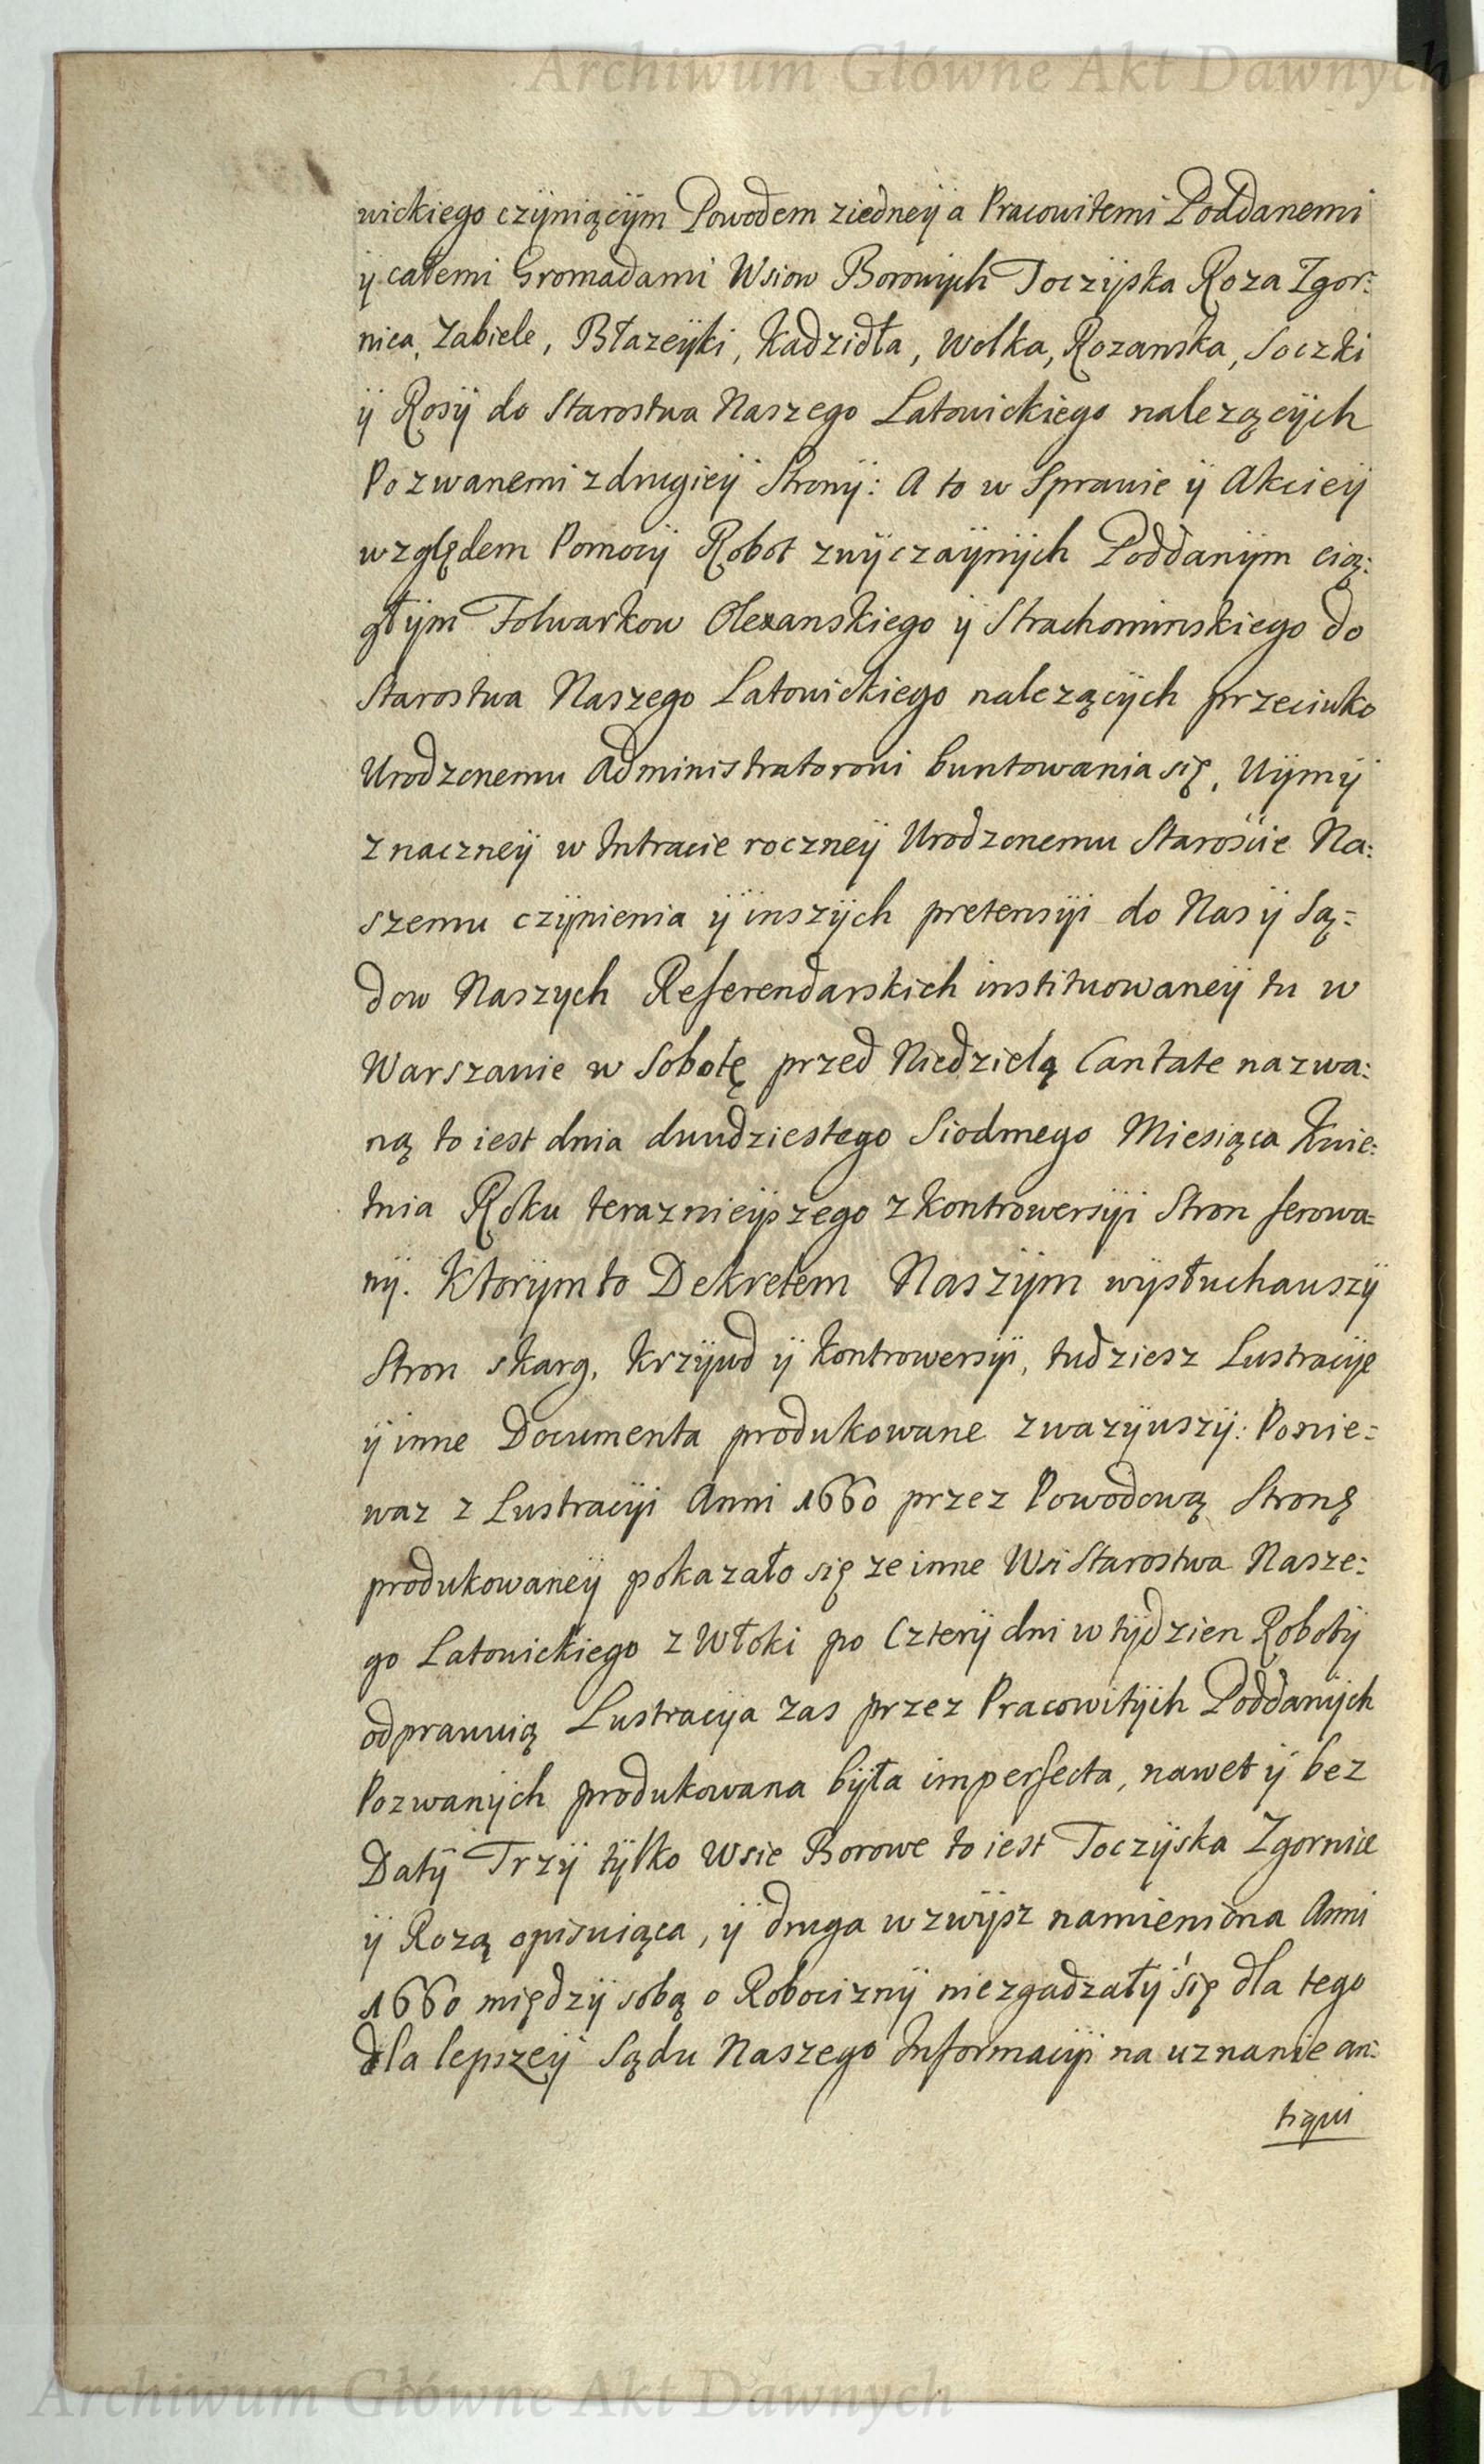 Archiwum Główne Akt Dawnych
wickiego czÿniącÿm Powodem z iedneÿ a Pracowitemi Poddanemi
ÿ całemi Gromadami Wsiow Borowÿch Toczÿska Roza Zgor:
nica, Zabiele, Błazeÿki, Kadzidła, Wolka, Rozanska, Soczki
ÿ Rosÿ do Starostwa Naszego Latowickiego nalezącÿch
Pozwanemi z drugieÿ Stronÿ: A to w Sprawie ÿ Akcieÿ
względem Pomocÿ Robot zwÿczaÿnÿch Poddanÿm cią:
głÿm Folwarkow Olexanskiego ÿ Strachominskiego do
Starostwa Naszego Latowickiego nalezącÿch przeciwko
Urodzonemu Administratorowi buntowania się, Uÿmÿ
znaczneÿ w Intracie roczneÿ Urodzonemu Staroście Na:
szemu czÿnienia ÿ inszÿch pretensÿi do Nas ÿ Są=
dow Naszych Referendarskich instituowaneÿ tu w
Warszawie w Sobotę przed Niedzielą Cantate nazwa:
ną to iest dnia dwudziestego Siodmego Miesiąca Kwie:
tnia Roku teraznieÿszego z kontrowersÿi Stron ferowa=
nÿ. Ktorÿm to Dekretem Naszÿm wÿsłuchawszÿ
Stron skarg, krzÿwd ÿ kontrowersÿi, tudziesz Lustracÿe
ÿ inne Documenta produkowane zwazÿwszÿ: Ponie=
waz z Lustracÿi Anni 1660 przez Powodową Stronę
produkowaneÿ pokazało się ze inne Wsi Starostwa Nasze:
go Latowickiego z Włoki po Czterÿ dni w tÿdzien Robotÿ
odprawuią Lustracÿa zas przez Pracowitÿch Poddanÿch
Pozwanÿch produkowana bÿła imperfecta, nawet ÿ bez
Datÿ Trzÿ tÿlko Wsie Borowe to iest Toczÿska Zgornice
ÿ Rozą opisuiąca, ÿ druga wzwÿsz namieniona Anni
1660 międzÿ sobą o Robociznÿ niezgadzałÿ się dla tego
dla lepszeÿ Sądu Naszego Informacÿi na uznanie an:
tiqui
Archiwum Główne Akt Dawnych